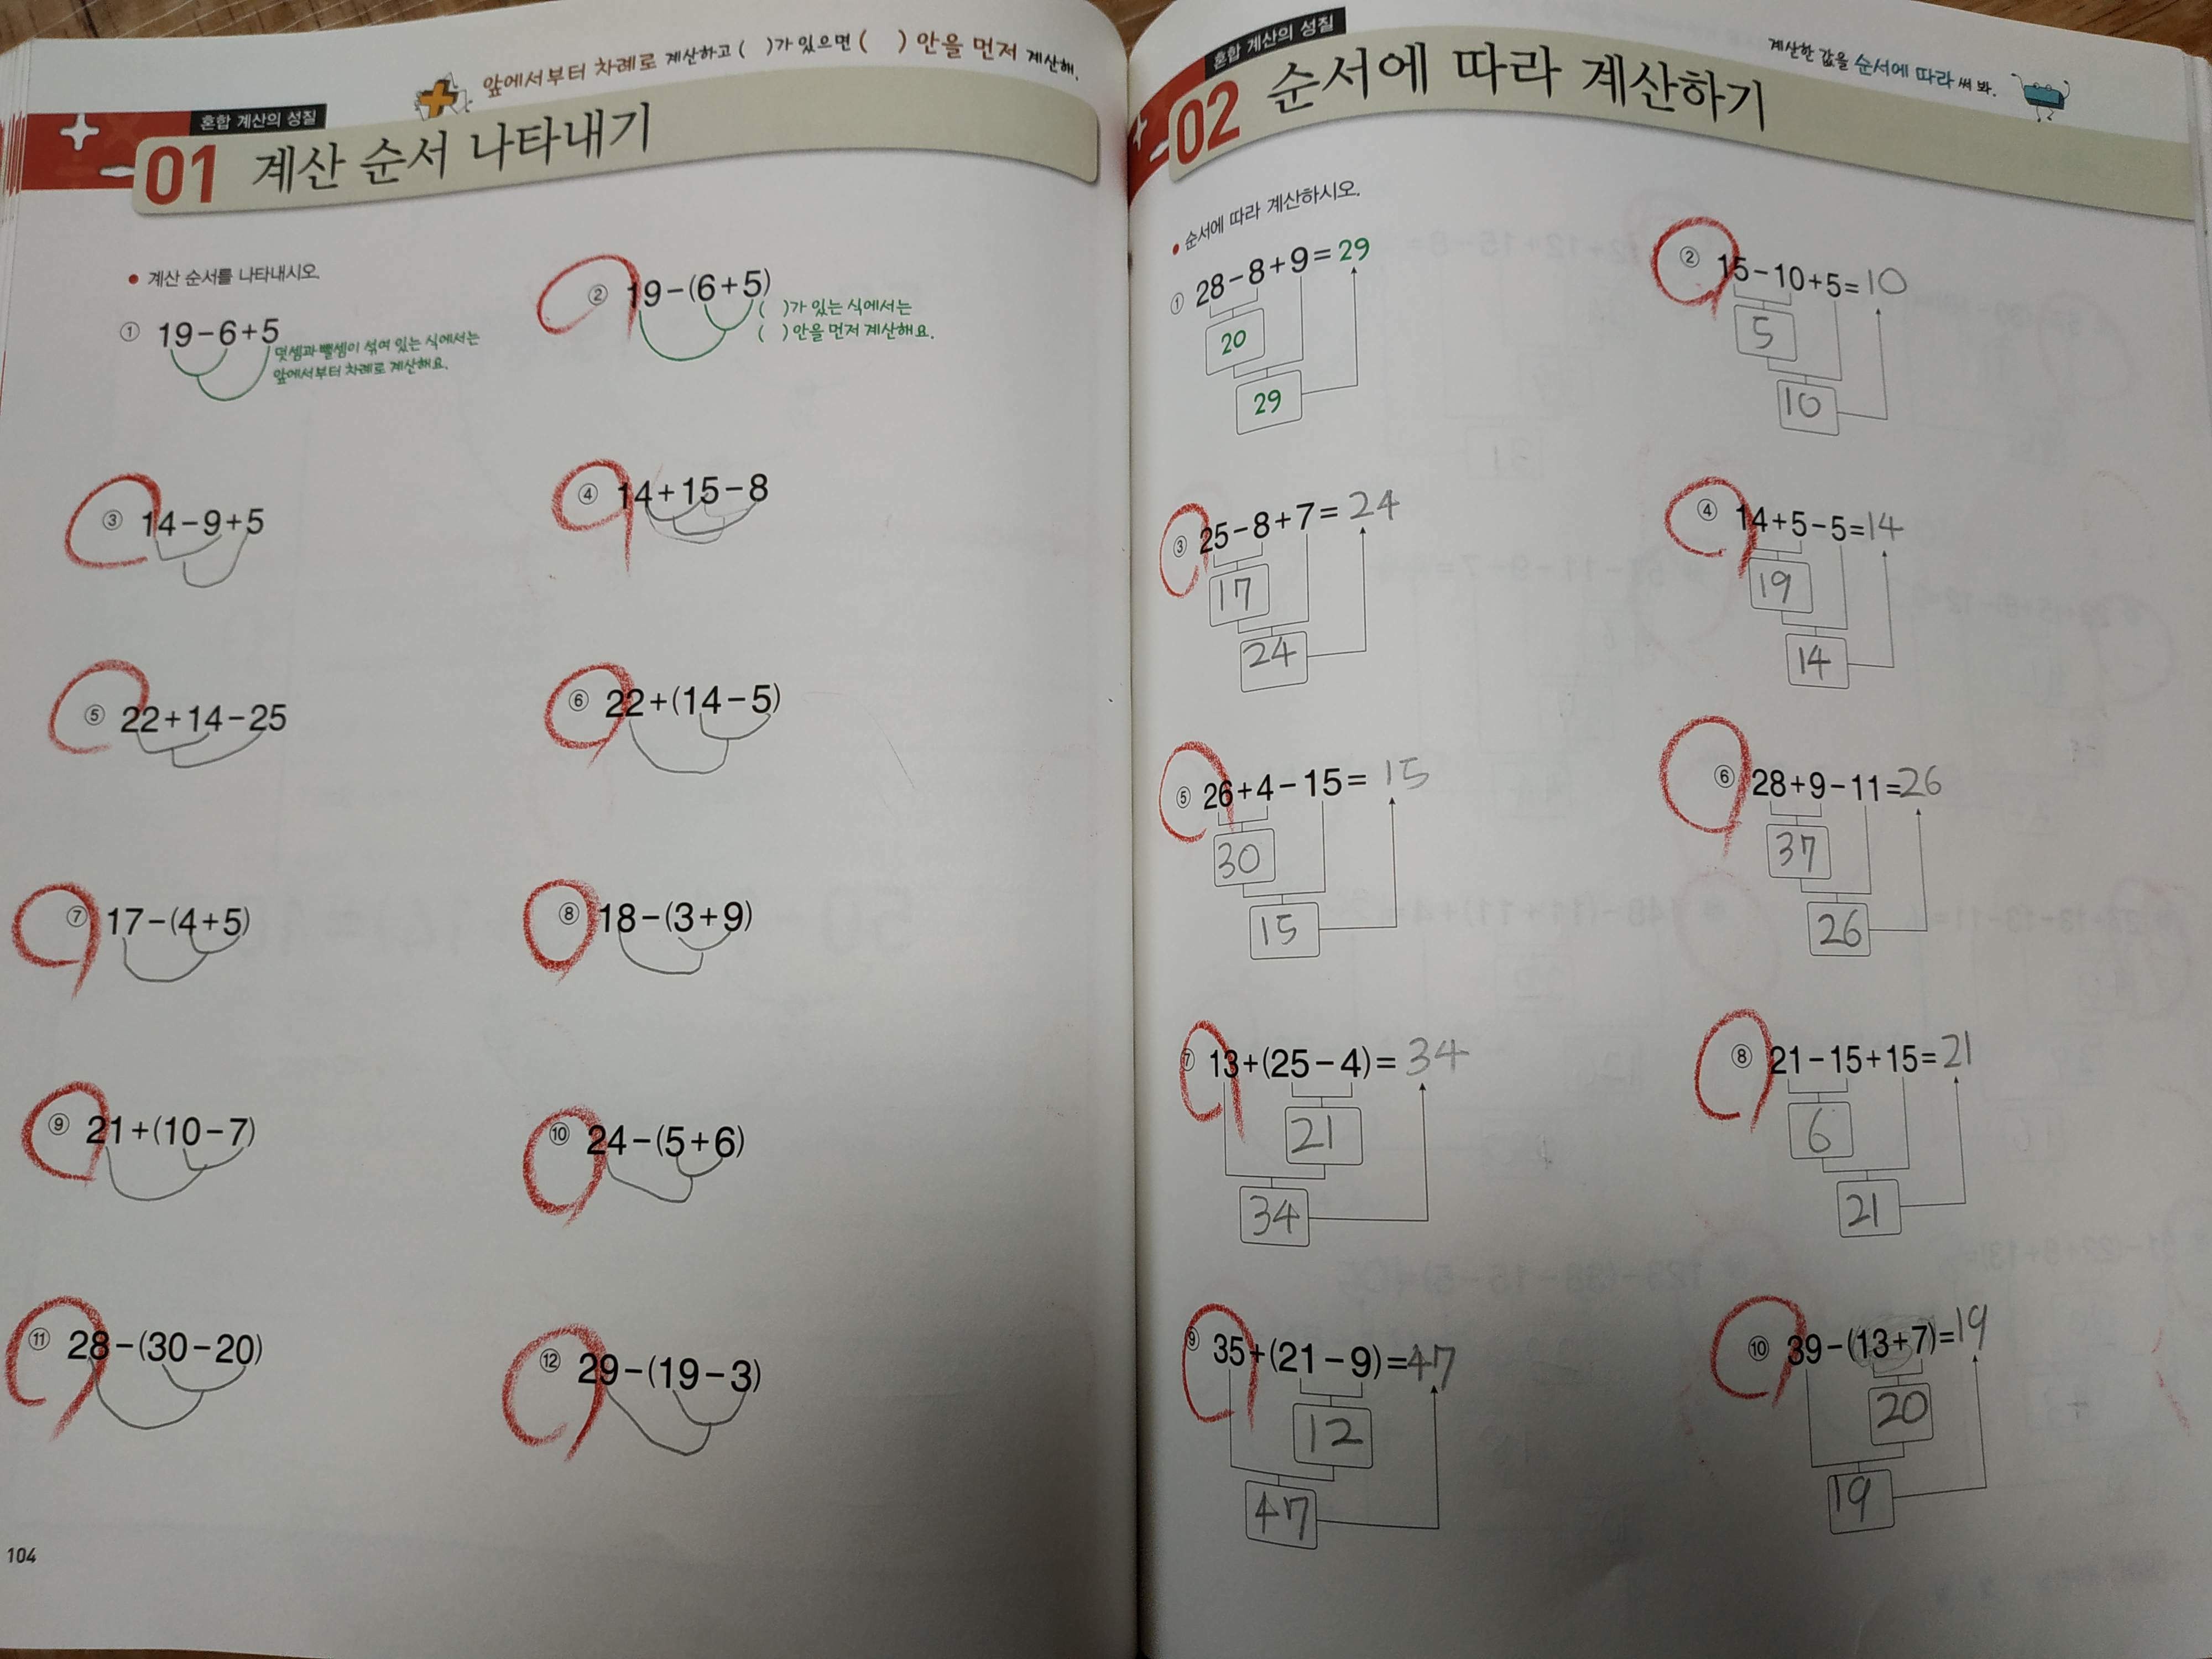 앞에서부터 차례로 계산하고 ( )가 있으면 ( ) 안을 먼저 계산해.
혼합 계산의 성질
01 계산 순서 나타내기
• 계산 순서를 나타내시오.
① 19-6+5
덧셈과 뺄셈이 섞여 있는 식에서는
앞에서부터 차례로 계산해요.
② 19-(6+5)
( )가 있는 식에서는
( )안을 먼저 계산해요.
③ 14-9+5
④ 14+15-8
⑤ 22+14-25
⑥ 22+(14-5)
⑦ 17-(4+5)
⑧ 18-(3+9)
⑨ 21+(10-7)
⑩ 24-(5+6)
⑪ 28-(30-20)
⑫ 29-(19-3)
104
혼합 계산의 성질
02 순서에 따라 계산하기
계산한 값을 순서에 따라 써 봐.
• 순서에 따라 계산하시오.
① 28-8+9=29
20
29
② 15-10+5=10
5
10
③ 25-8+7=24
17
24
④ 14+5-5=14
19
14
⑤ 26+4-15=15
30
15
⑥ 28+9-11=26
37
26
⑦ 13+(25-4)=34
21
34
⑧ 21-15+15=21
6
21
⑨ 35+(21-9)=47
12
47
⑩ 39-(13+7)=19
20
19